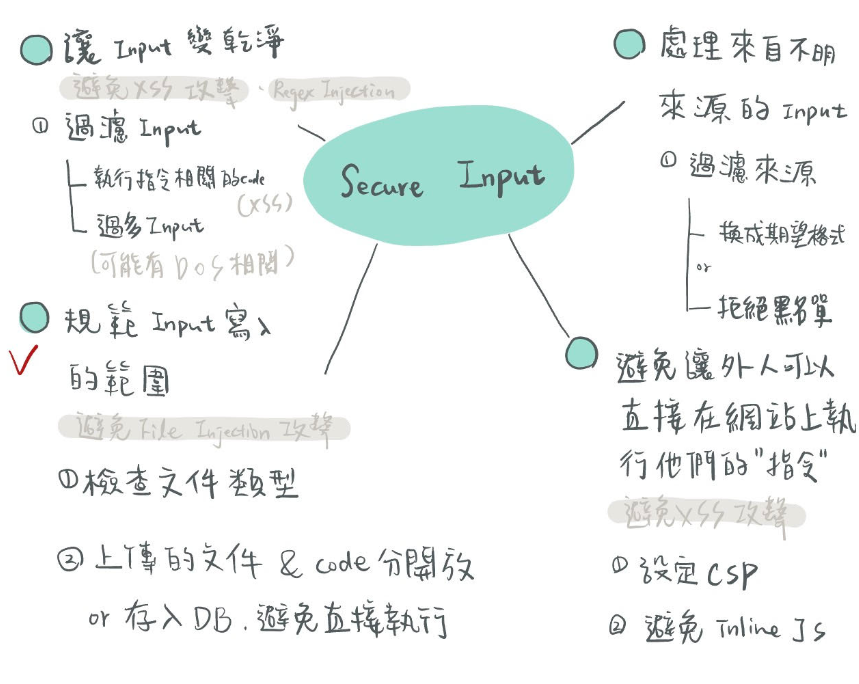 Secure Input
讓 Input 變乾淨
避免 XSS 攻擊、Regex Injection
① 過濾 Input
執行指令相關的code
(XSS)
過多Input
(可能有 DoS 相關)
規範 Input 寫入
的範圍
避免 File Injection 攻擊
① 檢查文件類型
② 上傳的文件 & code 分開放
or 存入 DB、避免直接執行
處理來自不明
來源的 Input
① 過濾來源
換成期望格式
or
拒絕黑名單
避免讓外人可以
直接在網站上執
行他們的"指令"
避免XSS 攻擊
① 設定 CSP
② 避免 Inline JS